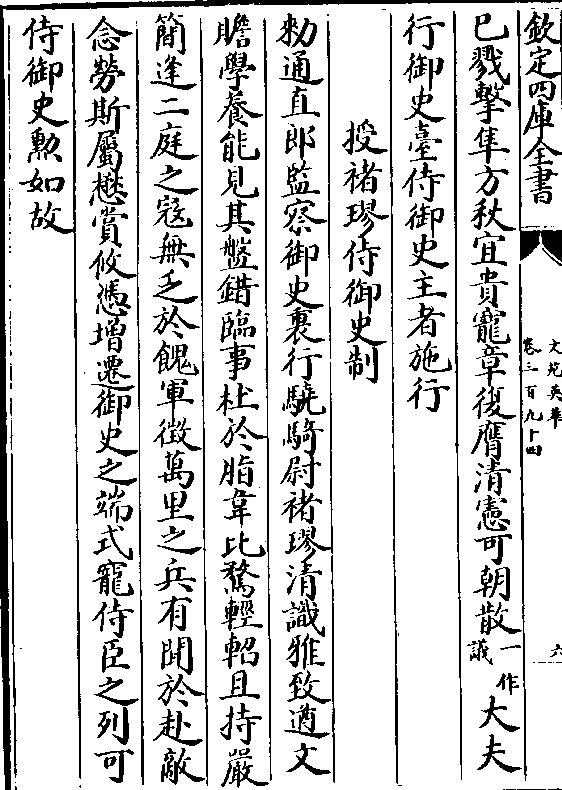 欽定四庫全書
文苑英華
卷三百九十四
六
已戮擊隼方秋宜貴寵章復膺清憲可朝散一作議大夫
行御史臺侍御史主者施行
授褚璆侍御史制
勅通直郎監察御史裏行驍騎尉褚璆清識雅致遒文
贍學養能見其盤錯臨事杜於脂韋比騖輕軺且持嚴
簡逢二庭之寇無乏於餽軍徵萬里之兵有聞於赴敵
念勞斯屬懋賞攸憑增遷御史之端式寵侍臣之列可
侍御史勲如故